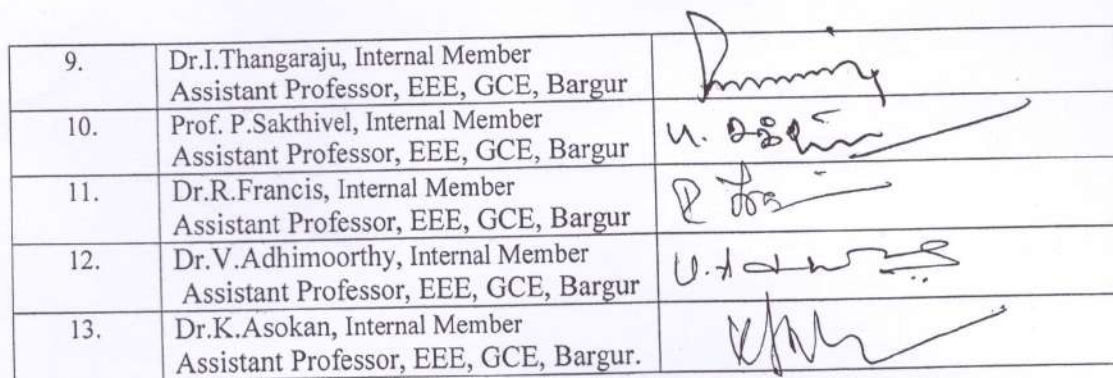 9. Dr.I.Thangaraju, Internal Member
Assistant Professor, EEE, GCE, Bargur
10. Prof. P.Sakthivel, Internal Member
Assistant Professor, EEE, GCE, Bargur
11. Dr.R.Francis, Internal Member
Assistant Professor, EEE, GCE, Bargur
12. Dr.V.Adhimoorthy, Internal Member
Assistant Professor, EEE, GCE, Bargur
13. Dr.K.Asokan, Internal Member
Assistant Professor, EEE, GCE, Bargur.